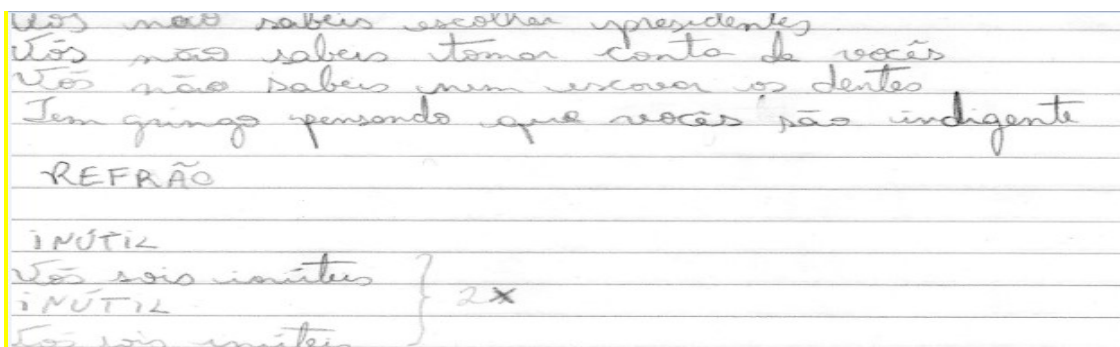 Vós não sabeis escolher presidentes
Vós não sabeis tomar conta de vocês
Vós não sabeis nem escovar os dentes
Tem gringo pensando que vocês são indigente
REFRÃO
INÚTIL
Vós sois inúteis
INÚTIL 2x
Vós sois inúteis